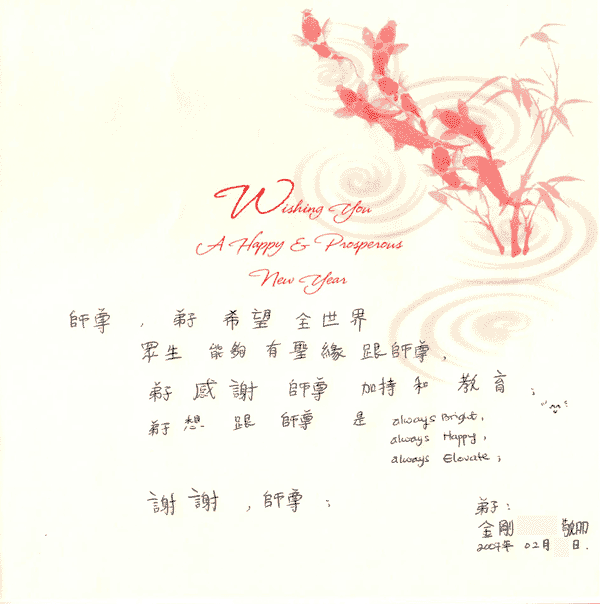 Wishing You
A Happy & Prosperous
New Year
師尊，弟子 希望 全世界
眾生 能夠 有聖緣 跟師尊，
弟子 感謝 師尊 加持和 教育；
弟子 想 跟 師尊 是 always Bright,
always Happy,
always Elevate;
謝謝，師尊；
弟子：
金剛 敬叩
2007年 02月 日.